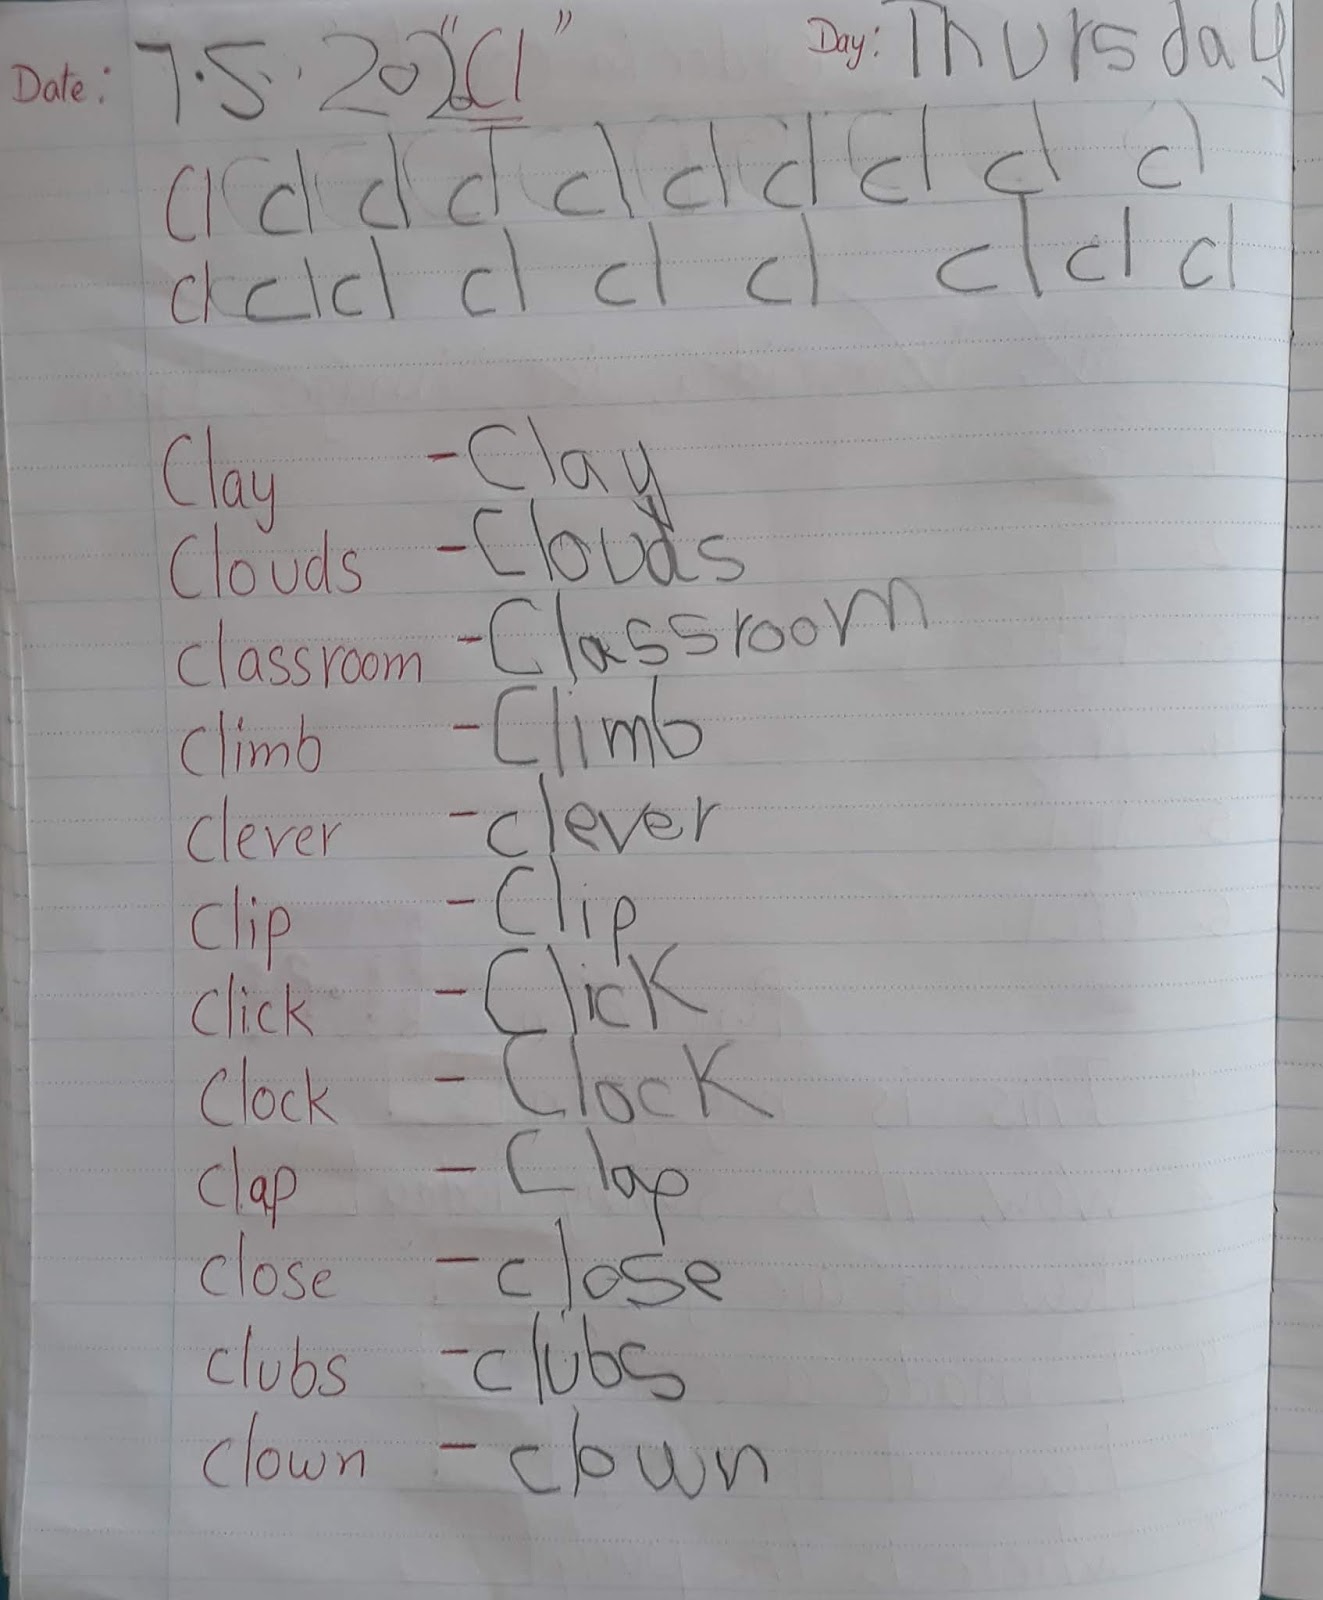 Date: 7.5.202 "Cl" Day: Thursday
Cl cl cl cl cl cl cl cl cl cl
cl cl cl cl cl cl cl cl cl
Clay - Clay
Clouds - Clouds
Classroom - Classroom
Climb - Climb
clever - clever
Clip - Clip
Click - Click
Clock - Clock
clap - Clap
close - close
clubs - clubs
clown - clown